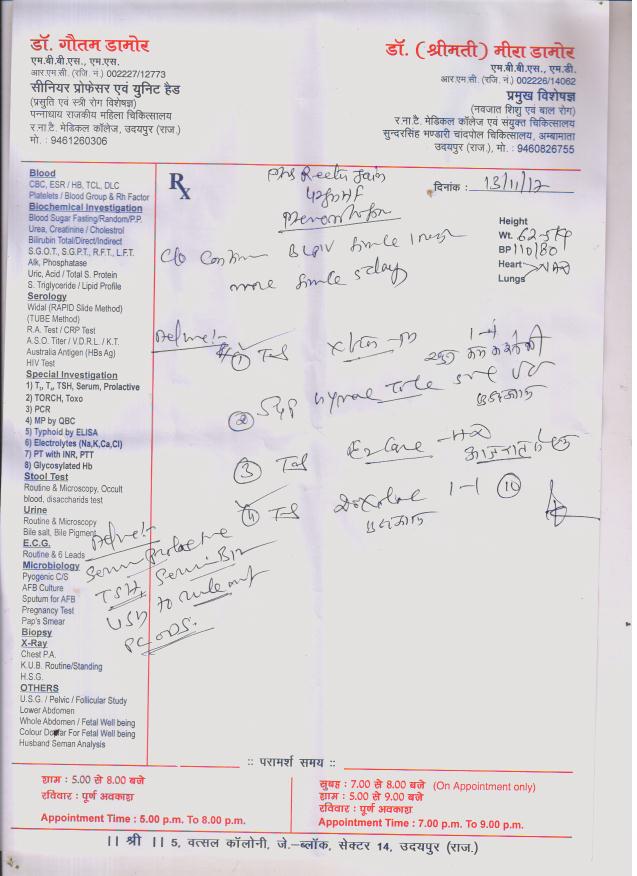 डॉ. गौतम डामोर
एम.बी.बी.एस., एम.एस.
आर.एम.सी. (रजि. नं.) 002227/12773
सीनियर प्रोफेसर एवं युनिट हैड
(प्रसुति एवं स्त्री रोग विशेषज्ञ)
पन्नाधाय राजकीय महिला चिकित्सालय
र.ना.टै. मेडिकल कॉलेज, उदयपुर (राज.)
मो. : 9461260306
डॉ. (श्रीमती) मीरा डामोर
एम.बी.बी.एस., एम.डी.
आर.एम.सी. (रजि. नं.) 002226/14062
प्रमुख विशेषज्ञ
(नवजात शिशु एवं बाल रोग)
र.ना.टै. मेडिकल कॉलेज एवं संयुक्त चिकित्सालय
सुन्दरसिंह भण्डारी चांदपोल चिकित्सालय, अम्बामाता
उदयपुर (राज.), मो. : 9460826755
Rx
Mrs Reetu Jain
दिनांक : 13/11/17
Height
Wt. 62.5 kg
BP 110/80
Heart NAD
Lungs
C/o
more since 5 day
Advise:-
① Tab
1-1
② Syp
③ Tab
④ Tab 1-1 ⑩
Advise:-
Serum Prolactine
TSH, Serum B12
USG to rule out
PCODS.
Blood
CBC, ESR / HB, TCL, DLC
Platelets / Blood Group & Rh Factor
Biochemical Investigation
Blood Sugar Fasting/Random/P.P.
Urea, Creatinine / Cholestrol
Bilirubin Total/Direct/Indirect
S.G.O.T., S.G.P.T., R.F.T., L.F.T.
Alk, Phosphatase
Uric, Acid / Total S. Protein
S. Triglyceride / Lipid Profile
Serology
Widal (RAPID Slide Method)
(TUBE Method)
R.A. Test / CRP Test
A.S.O. Titer / V.D.R.L. / K.T.
Australia Antigen (HBs Ag)
HIV Test
Special Investigation
1) T₃, T₄, TSH, Serum, Prolactive
2) TORCH, Toxo
3) PCR
4) MP by QBC
5) Typhoid by ELISA
6) Electrolytes (Na,K,Ca,Cl)
7) PT with INR, PTT
8) Glycosylated Hb
Stool Test
Routine & Microscopy, Occult
blood, disaccharids test
Urine
Routine & Microscopy
Bile salt, Bile Pigment
E.C.G.
Routine & 6 Leads
Microbiology
Pyogenic C/S
AFB Culture
Sputum for AFB
Pregnancy Test
Pap's Smear
Biopsy
X-Ray
Chest P.A.
K.U.B. Routine/Standing
H.S.G.
OTHERS
U.S.G. / Pelvic / Follicular Study
Lower Abdomen
Whole Abdomen / Fetal Well being
Colour Doppler For Fetal Well being
Husband Seman Analysis
:: परामर्श समय ::
शाम : 5.00 से 8.00 बजे
रविवार : पूर्ण अवकाश
Appointment Time : 5.00 p.m. To 8.00 p.m.
सुबह : 7.00 से 8.00 बजे (On Appointment only)
शाम : 5.00 से 9.00 बजे
रविवार : पूर्ण अवकाश
Appointment Time : 7.00 p.m. To 9.00 p.m.
|| श्री || 5, वत्सल कॉलोनी, जे.–ब्लॉक, सेक्टर 14, उदयपुर (राज.)